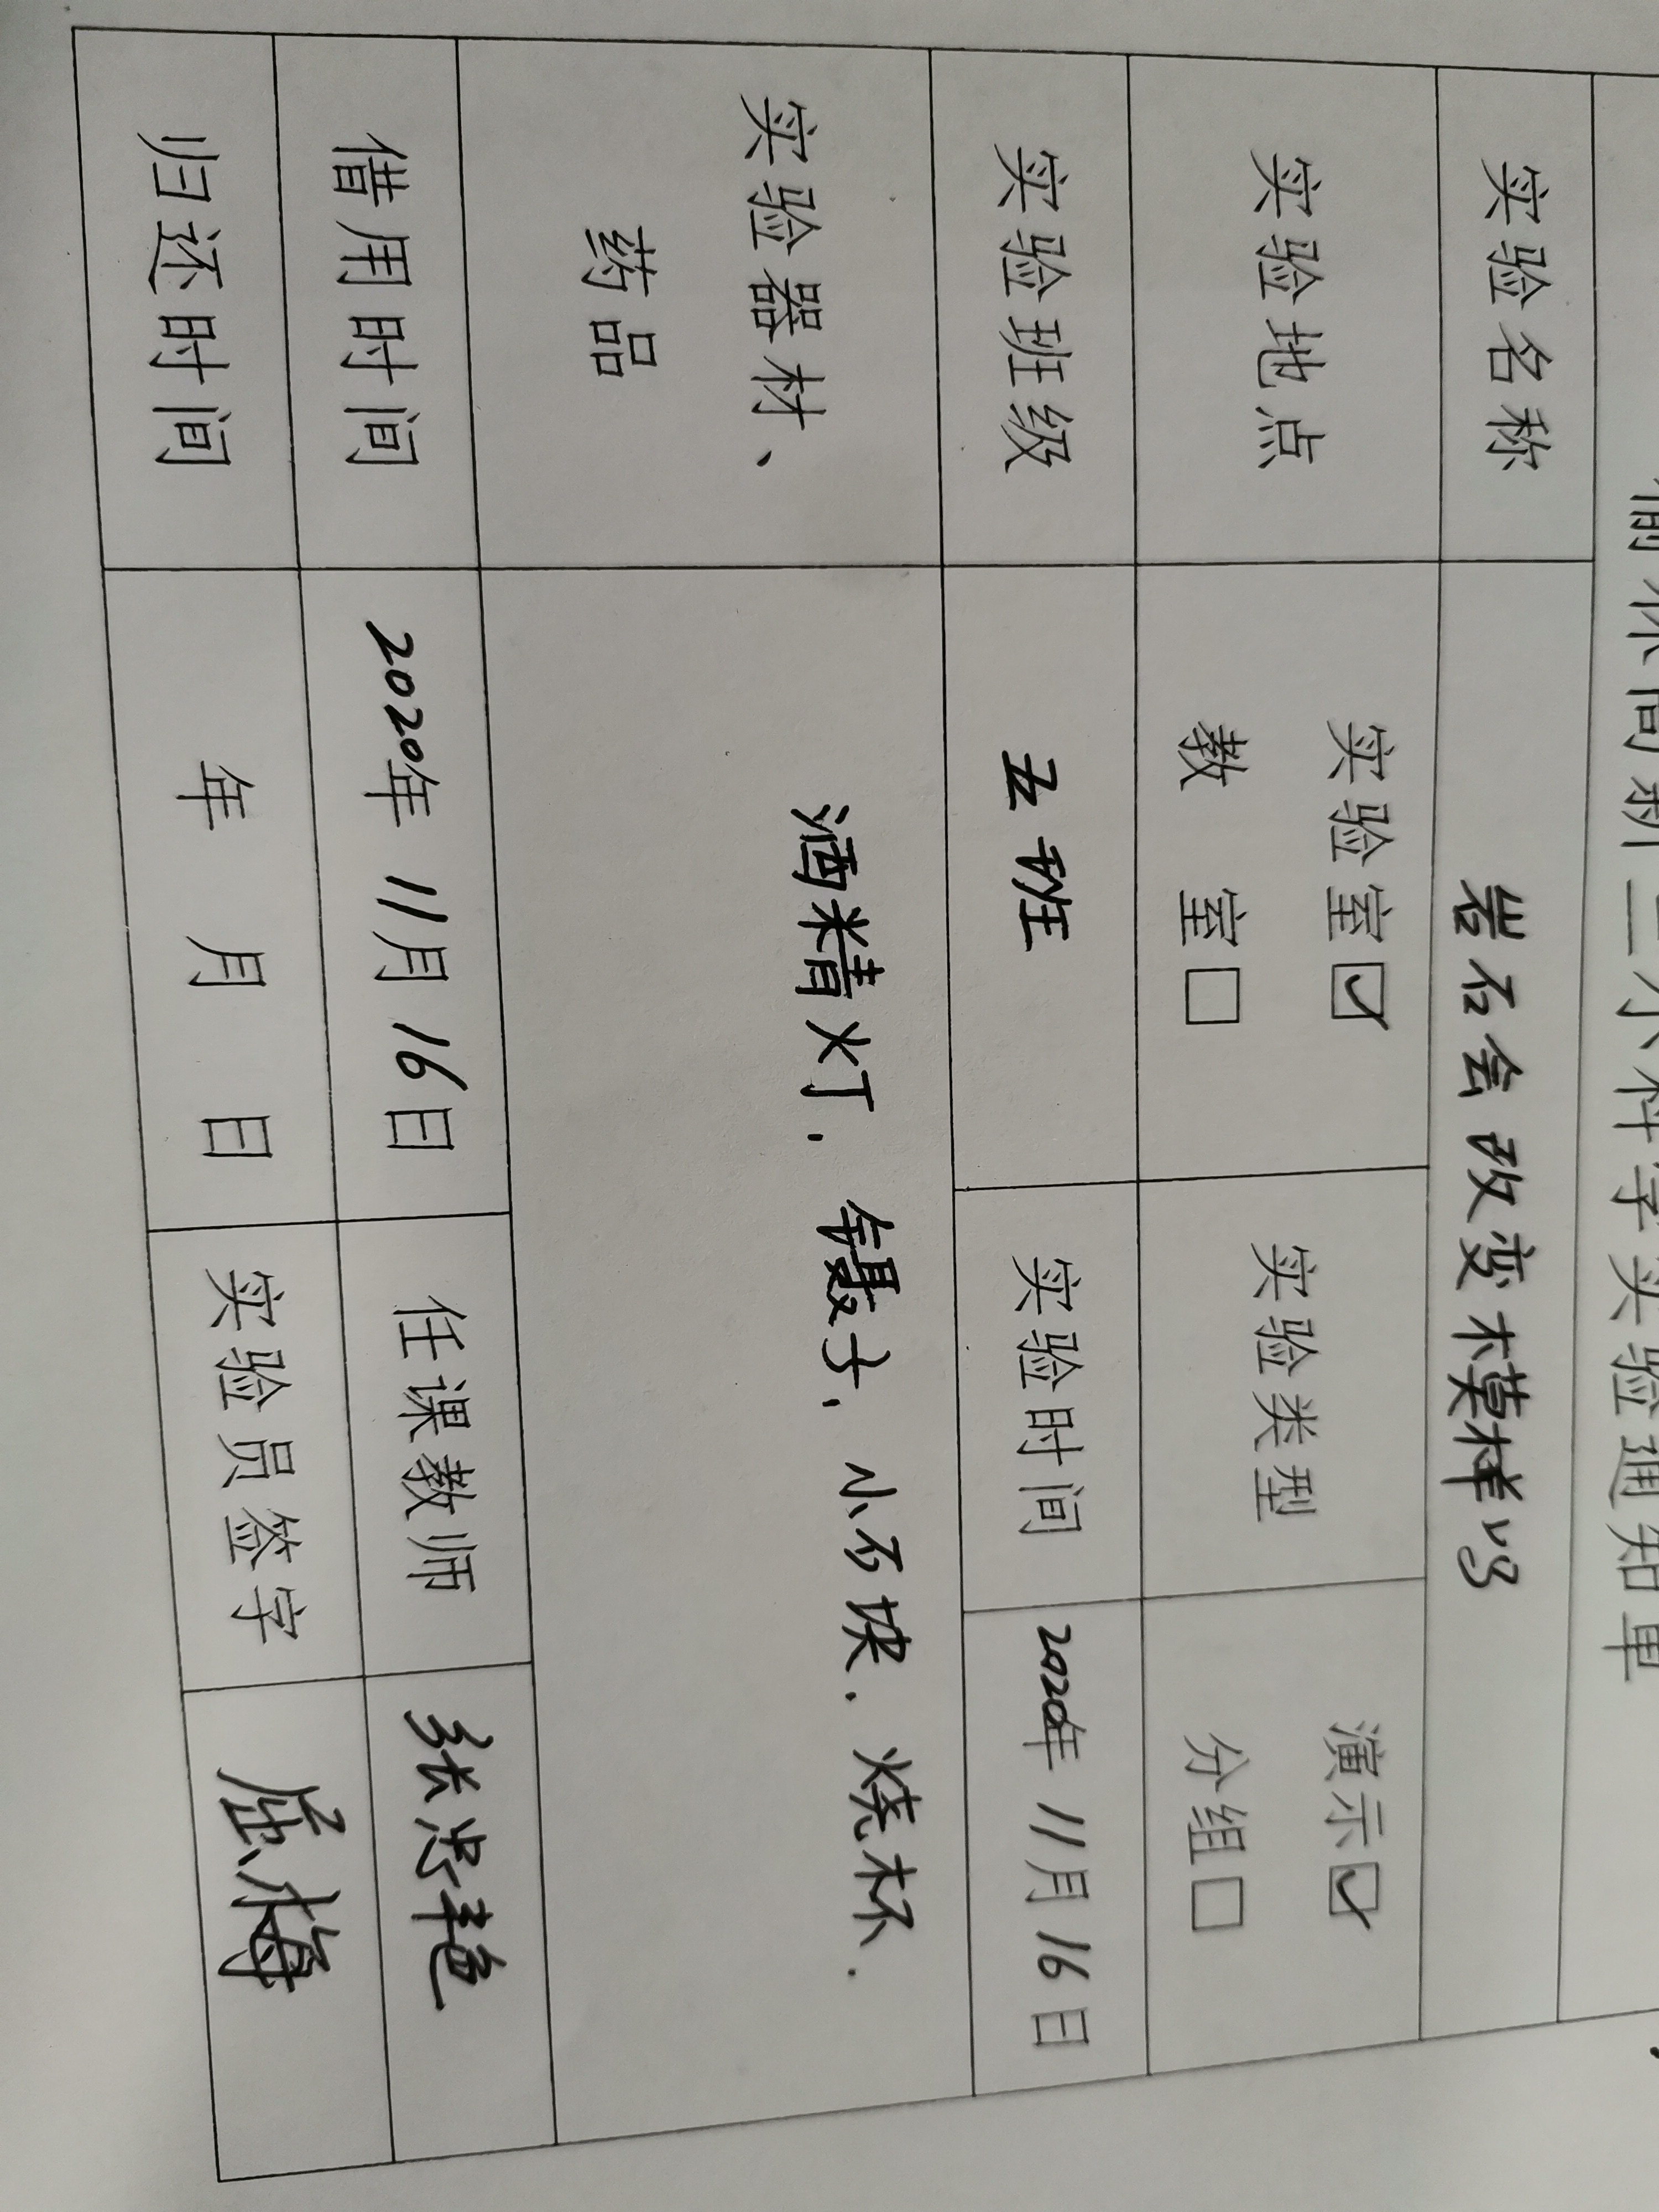 榆林高新二小科学实验通知单
实验名称 岩石会改变模样吗
实验地点 实验室☑ 教 室□ 实验类型 演示☑ 分组□
实验班级 五班 实验时间 2020年 11月 16日
实验器材、药品 酒精灯. 镊子, 小石块. 烧杯.
借用时间 2020年 11月 16日 任课教师
归还时间 年 月 日 实验员签字